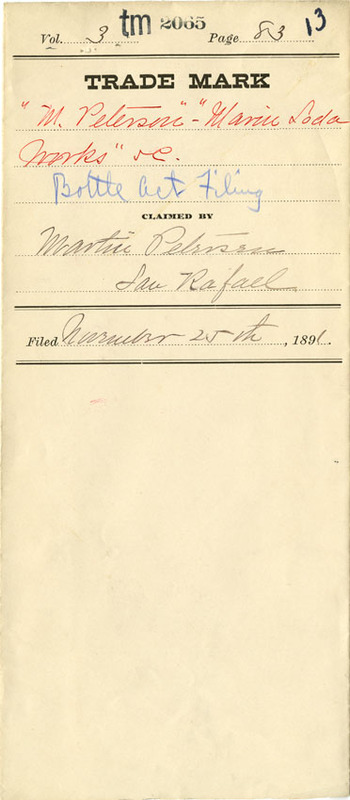 Vol. 3 tm 2065 Page 83 13
TRADE MARK
"M. Peterson" - "Marin Soda
Works" &c.
Bottle Act Filing
CLAIMED BY
Martin Petersen
San Rafael
Filed November 25th, 1891.